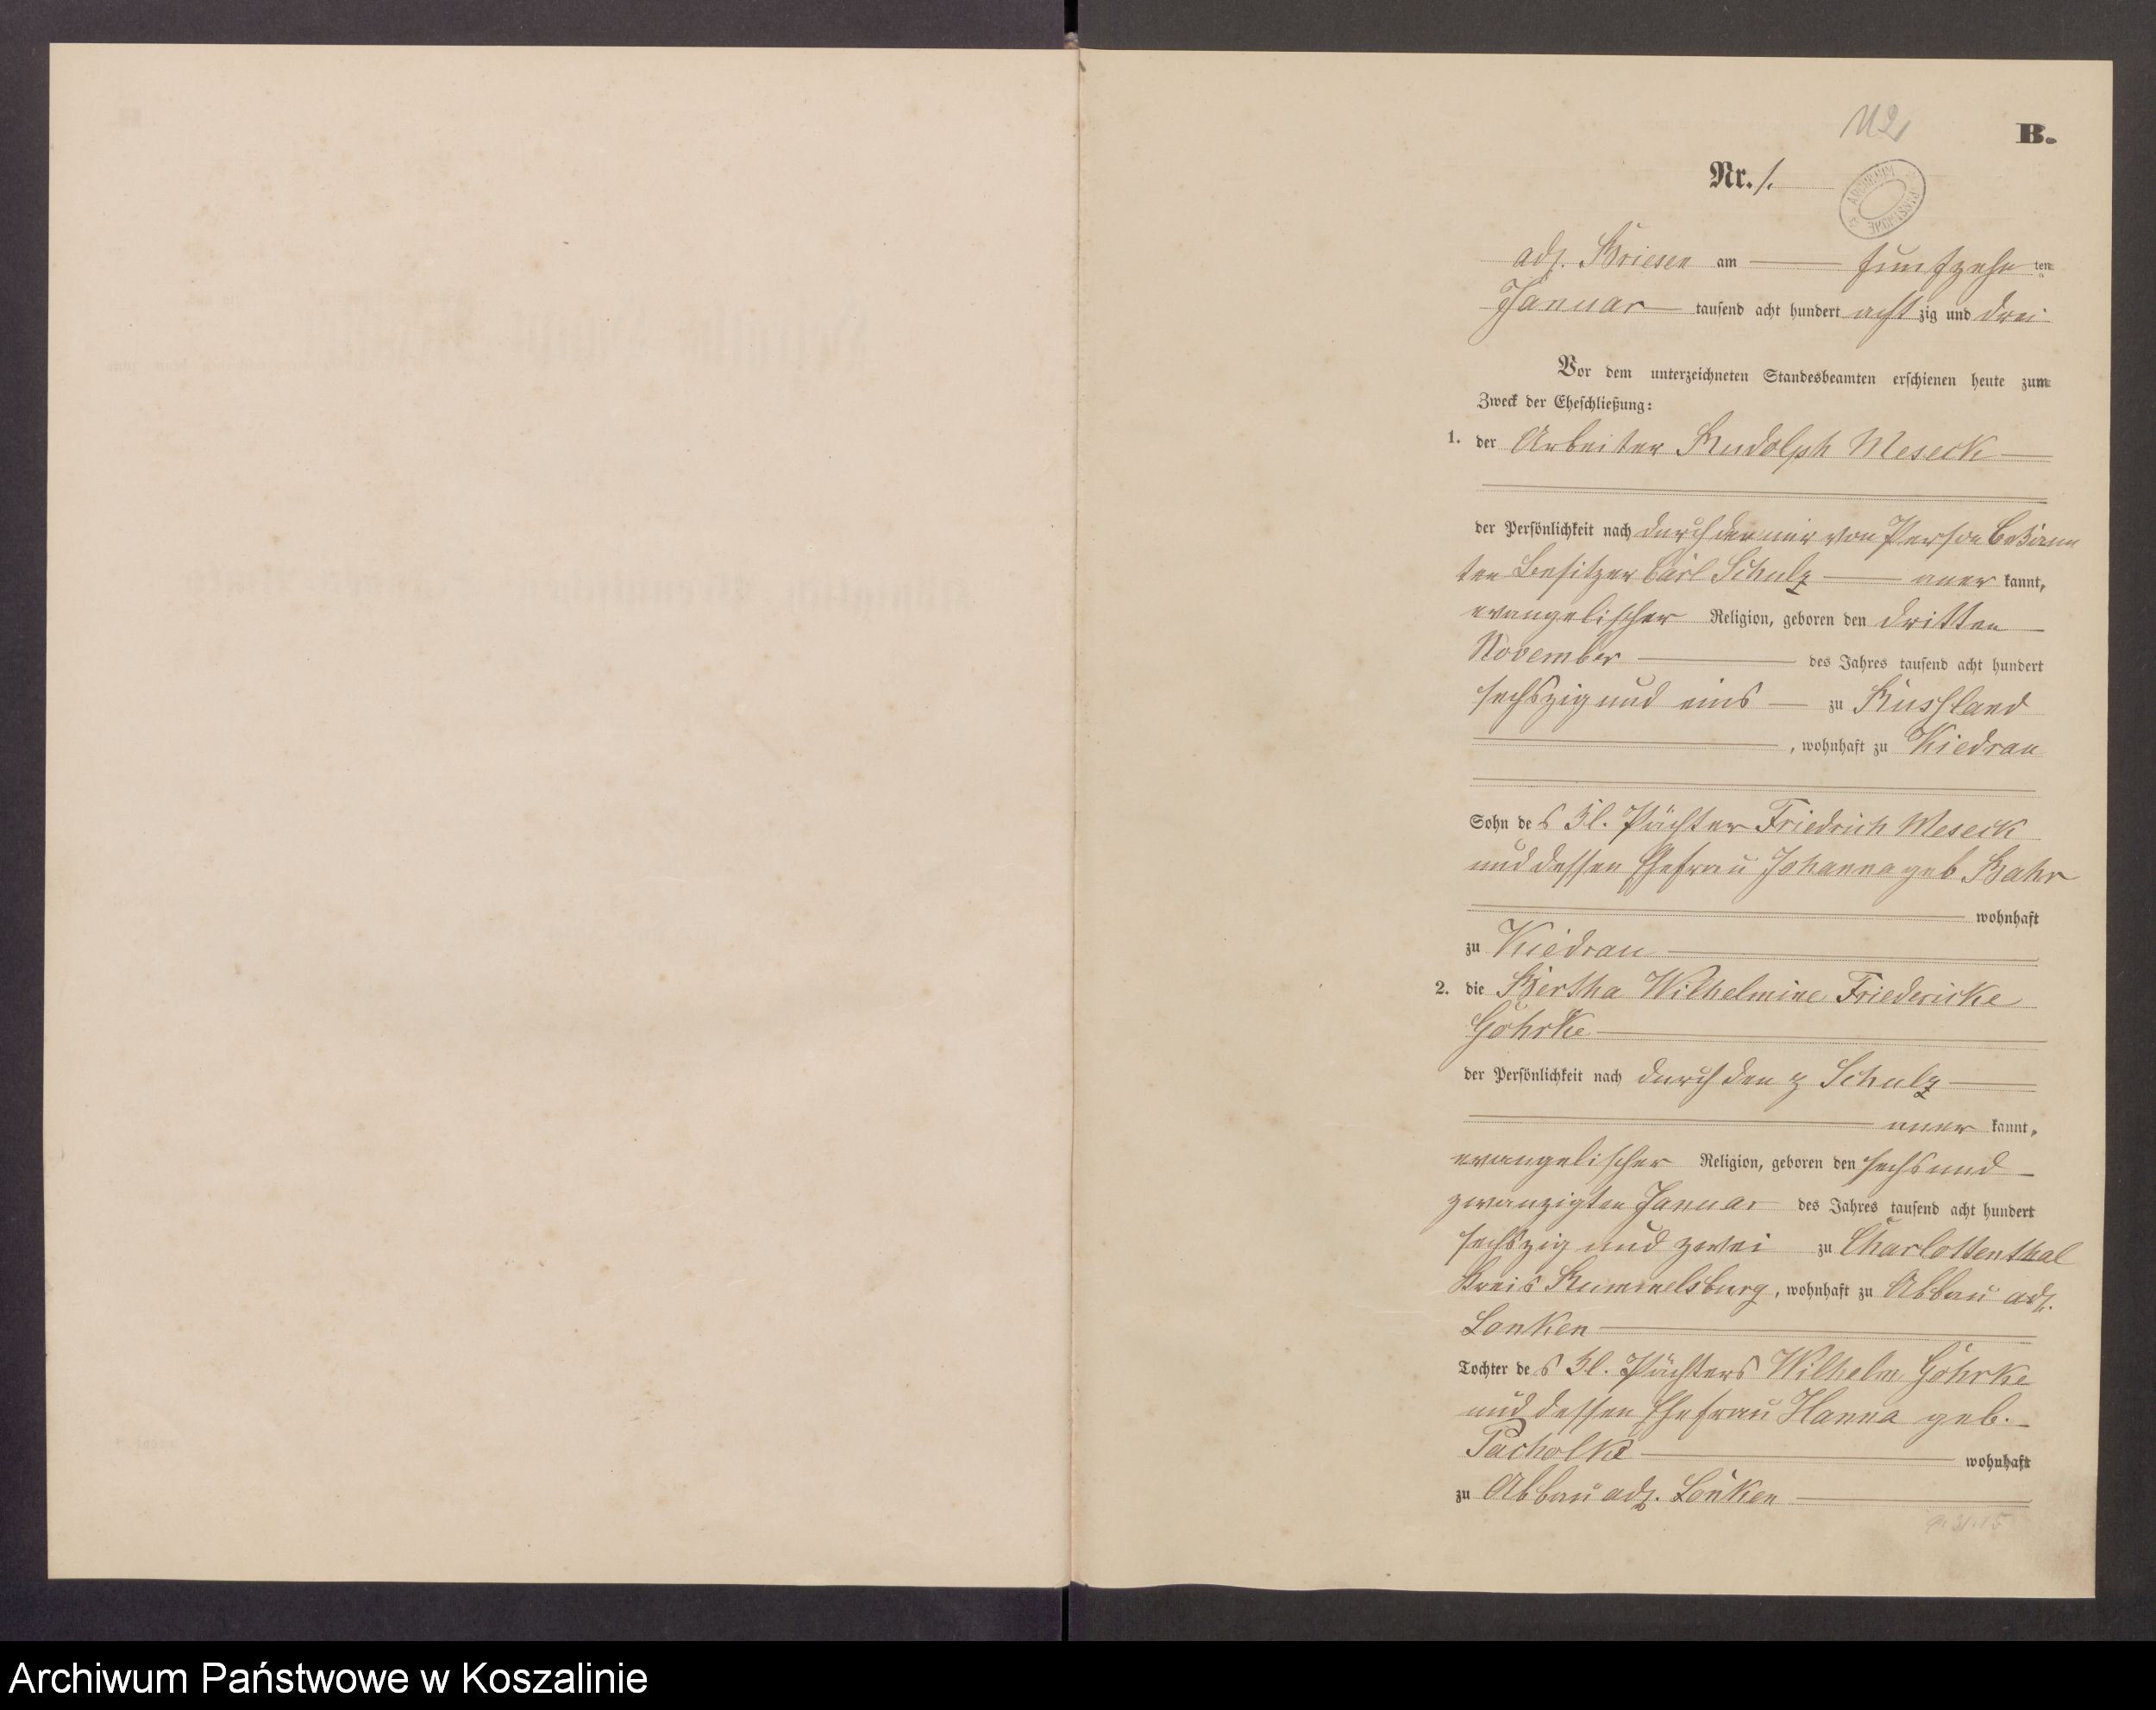 B.
Nr. 1.
adl. Briesen am fünfzehn ten
Januar tausend acht hundert acht zig und drei
Vor dem unterzeichneten Standesbeamten erschienen heute zum
Zweck der Eheschließung:
1. der Arbeiter Rudolph Meseck
der Persönlichkeit nach durch den mir von Person bekann
ten Besitzer Carl Schulz aner kannt,
evangelischer Religion, geboren den dritten
November des Jahres tausend acht hundert
sechszig und eins zu Russland
, wohnhaft zu Kiedrau
Sohn de s Kl. Pächter Friedrich Meseck
und dessen Ehefrau Johanna geb Bahr
wohnhaft
zu Kiedrau
2. die Bertha Wilhelmine Friedericke
Göhrke
der Persönlichkeit nach durch den Schulz
aner kannt,
evangelischer Religion, geboren den sechsund
zwanzigten Januar des Jahres tausend acht hundert
sechszig und zwei zu Charlottenthal
Kreis Rummelsburg, wohnhaft zu Abbau adl.
Lonken
Tochter de s Kl. Pächters Wilhelm Göhrke
und dessen Ehefrau Hanna geb.
Pacholke wohnhaft
zu Abbau adl. Lonken
Archiwum Państwowe w Koszalinie